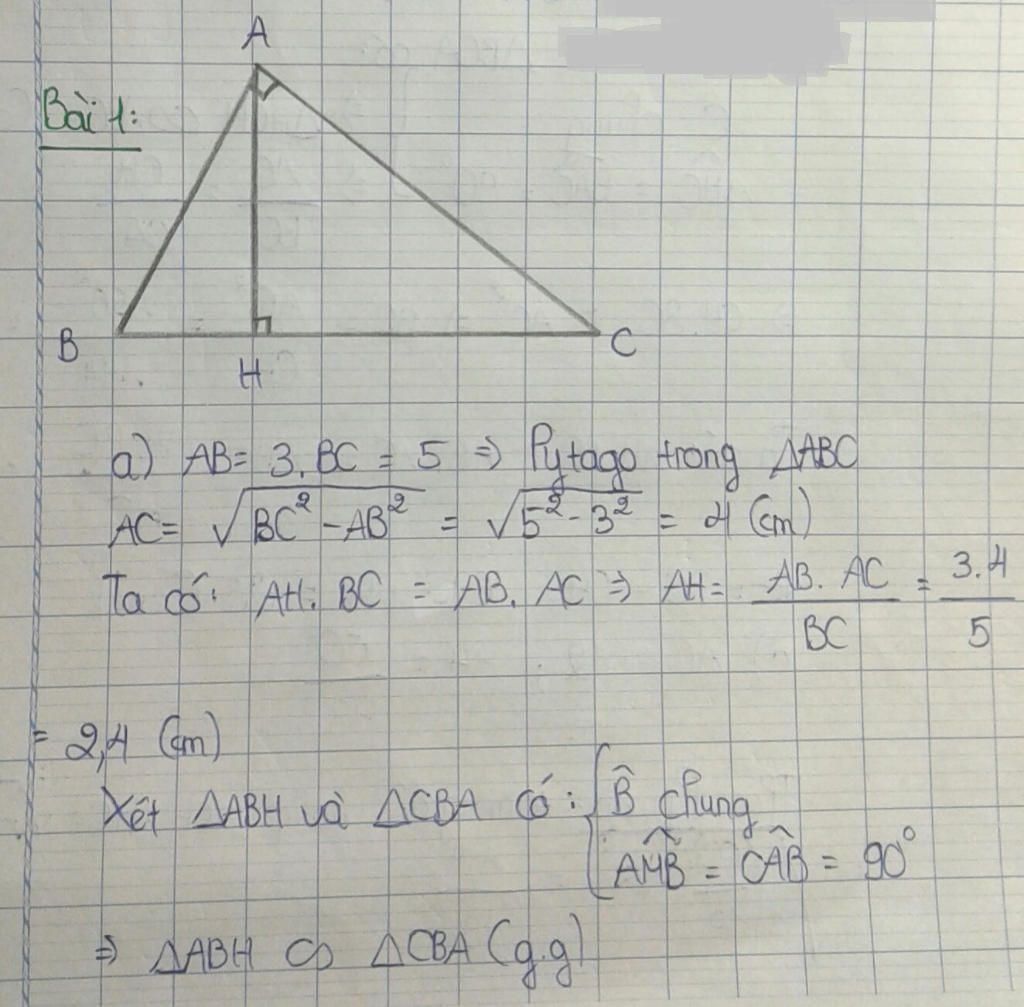 A
Bài 1:
B
H
C
a) AB = 3, BC = 5 ⇒ Pytago trong ΔABC
AC = √(BC² - AB²) = √(5² - 3²) = 4 (cm)
Ta có: AH. BC = AB. AC ⇒ AH = (AB. AC)/BC = (3.4)/5
= 2,4 (cm)
Xét ΔABH và ΔCBA có: { B̂ chung
AHB̂ = CAB̂ = 90°
⇒ ΔABH ∽ ΔCBA (g.g)